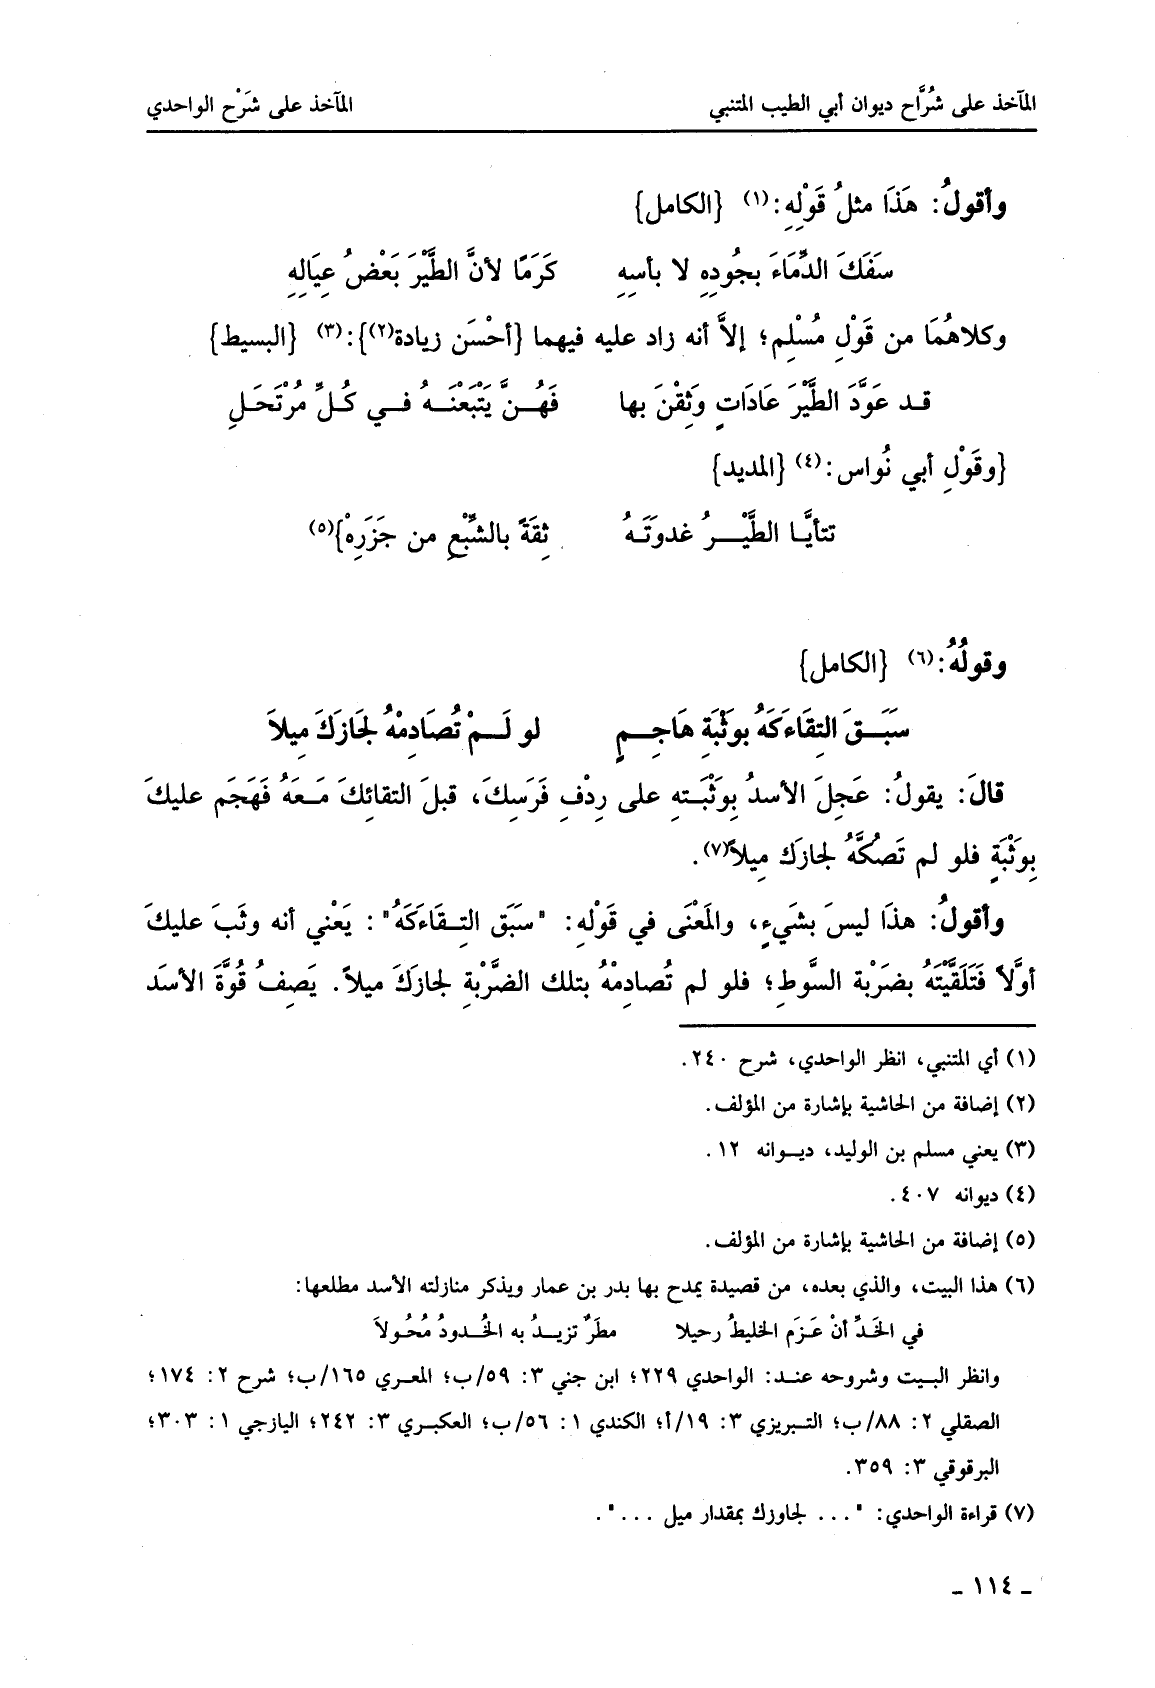 المآخذ على شُرَّاح ديوان أبي الطيب المتنبي المآخذ على شَرْح الواحدي
وأقولُ: هَذَا مثلُ قَوْلِهِ:(١) {الكامل}
سَفَكَ الدِّمَاءَ بجُودِهِ لا بأسِهِ كَرَمًا لأنَّ الطَّيْرَ بَعْضُ عِيَالِهِ
وكلاهُمَا من قَوْلِ مُسْلِمٍ؛ إلاَّ أنه زاد عليه فيهما {أحْسَن زيادة(٢)}:(٣) {البسيط}
قـد عَوَّدَ الطَّيْرَ عَادَاتٍ وَثِقْنَ بها فَهُـنَّ يَتْبَعْنَـهُ فـي كُـلِّ مُرْتَحَلِ
{وقَوْلِ أبي نُواس:(٤) {المديد}
تتأيَّـا الطَّيْـــرُ غدوَتَـهُ ثِقَةً بالشِّبْعِ من جَزَرِهْ}(٥)
وقولُهُ:(٦) {الكامل}
سَبَـــقَ التِقَاءَكَهُ بوَثْبَةِ هَاجِـــمٍ لو لَـــمْ تُصَادِمْهُ لجَازَكَ مِيلاَ
قالَ: يقولُ: عَجِلَ الأسدُ بِوَثْبَـتهِ على رِدْفِ فَرَسِكَ، قبلَ التقائِكَ مَـعَهُ فَهَجَم عليكَ
بِوَثْبَةٍ فلو لم تَصُكَّهُ لجازَك مِيلاً(٧).
وأقولُ: هذَا ليسَ بشَيءٍ، والمَعْنَى في قَوْلهِ: "سَبَق التِـقَاءَكَهُ": يَعْني أنه وثَبَ عليكَ
أوَّلاً فَتَلَقَّيْتَهُ بضَرْبة السَّوطِ؛ فلو لم تُصادِمْهُ بتلك الضَّرْبةِ لجازَكَ ميلاً. يَصِفُ قُوَّةَ الأسَد
(١) أي المتنبي، انظر الواحدي، شرح ٢٤٠.
(٢) إضافة من الحاشية بإشارة من المؤلف.
(٣) يعني مسلم بن الوليد، ديـوانه ١٢.
(٤) ديوانه ٤٠٧.
(٥) إضافة من الحاشية بإشارة من المؤلف.
(٦) هذا البيت، والذي بعده، من قصيدة يمدح بها بدر بن عمار ويذكر منازلته الأسد مطلعها:
في الخَدِّ أنْ عَـزَم الخليطُ رحيلا مطَرٌ تزيـدُ به الخُـدودُ مُحُولاَ
وانظر البـيت وشروحه عنـد: الواحدي ٢٢٩؛ ابن جني ٣: ٥٩/ب؛ المعري ١٦٥/ب؛ شرح ٢: ١٧٤؛
الصقلي ٢: ٨٨/ب؛ التبـريزي ٣: ١٩/أ؛ الكندي ١: ٥٦/ب؛ العكبـري ٣: ٢٤٢؛ اليازجي ١: ٣٠٣؛
البرقوقي ٣: ٣٥٩.
(٧) قراءة الواحدي: "... لجاوزك بمقدار ميل ...".
ـ ١١٤ ـ